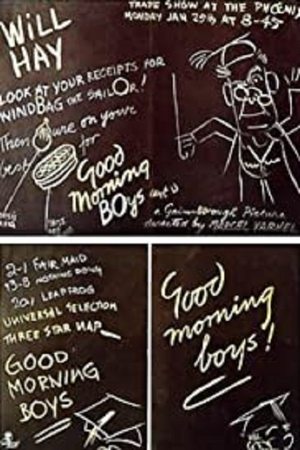 WILL
HAY
TRADE SHOW AT THE PHOENIX
MONDAY JAN 25th AT 8-45
LOOK AT YOUR RECEIPTS FOR
WINDBAG THE SAILOR!
Then on your
best for
Good
Morning
BOYS (cert u)
a Gainsborough Picture
directed by MARCEL VARNEL
2-1 FAIR MAID
13-8 MORNING
20/1 LEAPFROG
UNIVERSAL SELECTION
THREE STAR NAP
GOOD
MORNING
BOYS
Good
morning
boys!